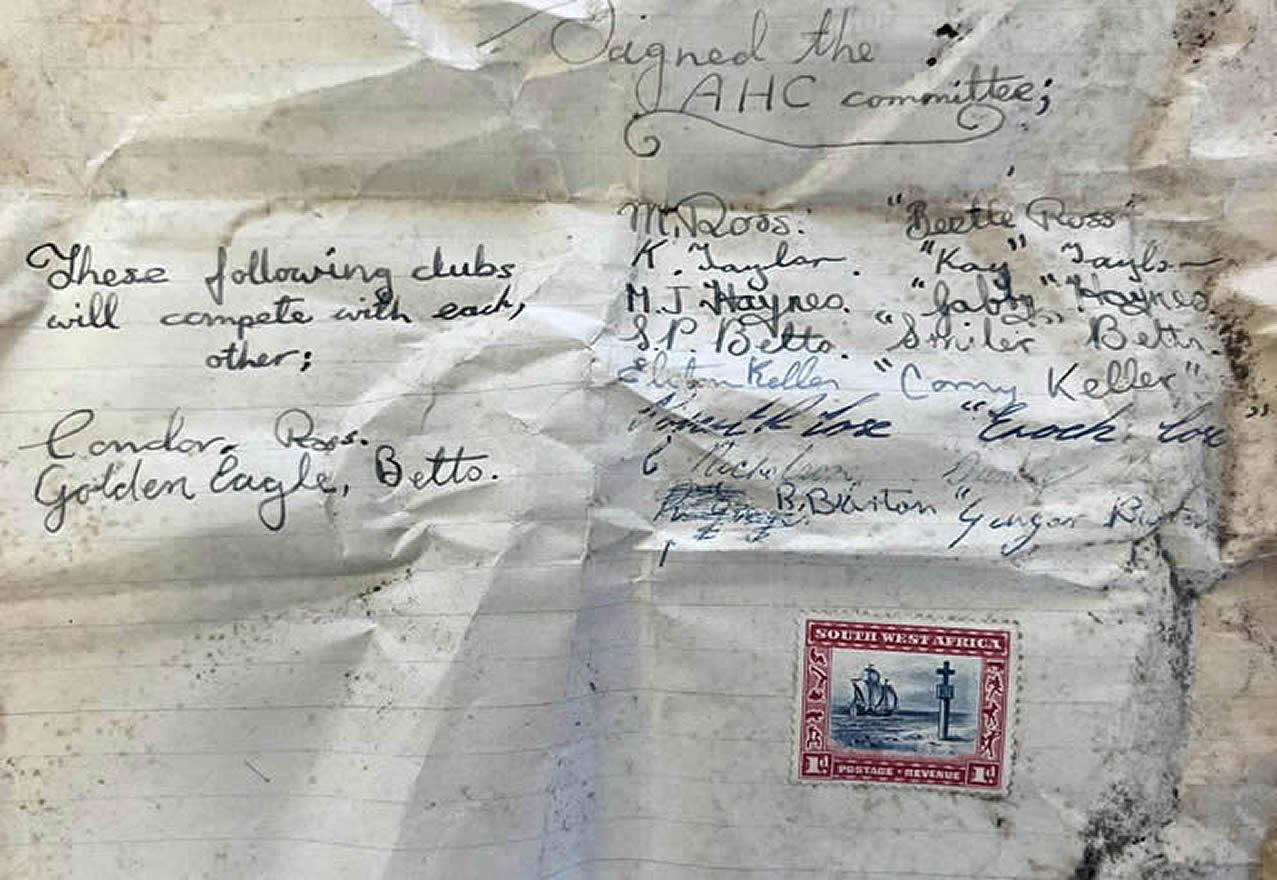 Signed the
AHC committee;
These following clubs
will compete with each,
other;
Condor, Ross.
Golden Eagle, Betts.
M. Ross. "Beetle Ross"
K. Taylor. "Kay" Taylor
M.J. Haynes. "Gabby" Haynes
S.P. Betts. "Smiler" Betts.
Keller "Corny Keller"
"Enoch
Nicholson
B. Burton "Gunga Burton
SOUTH WEST AFRICA
1d POSTAGE · REVENUE 1d